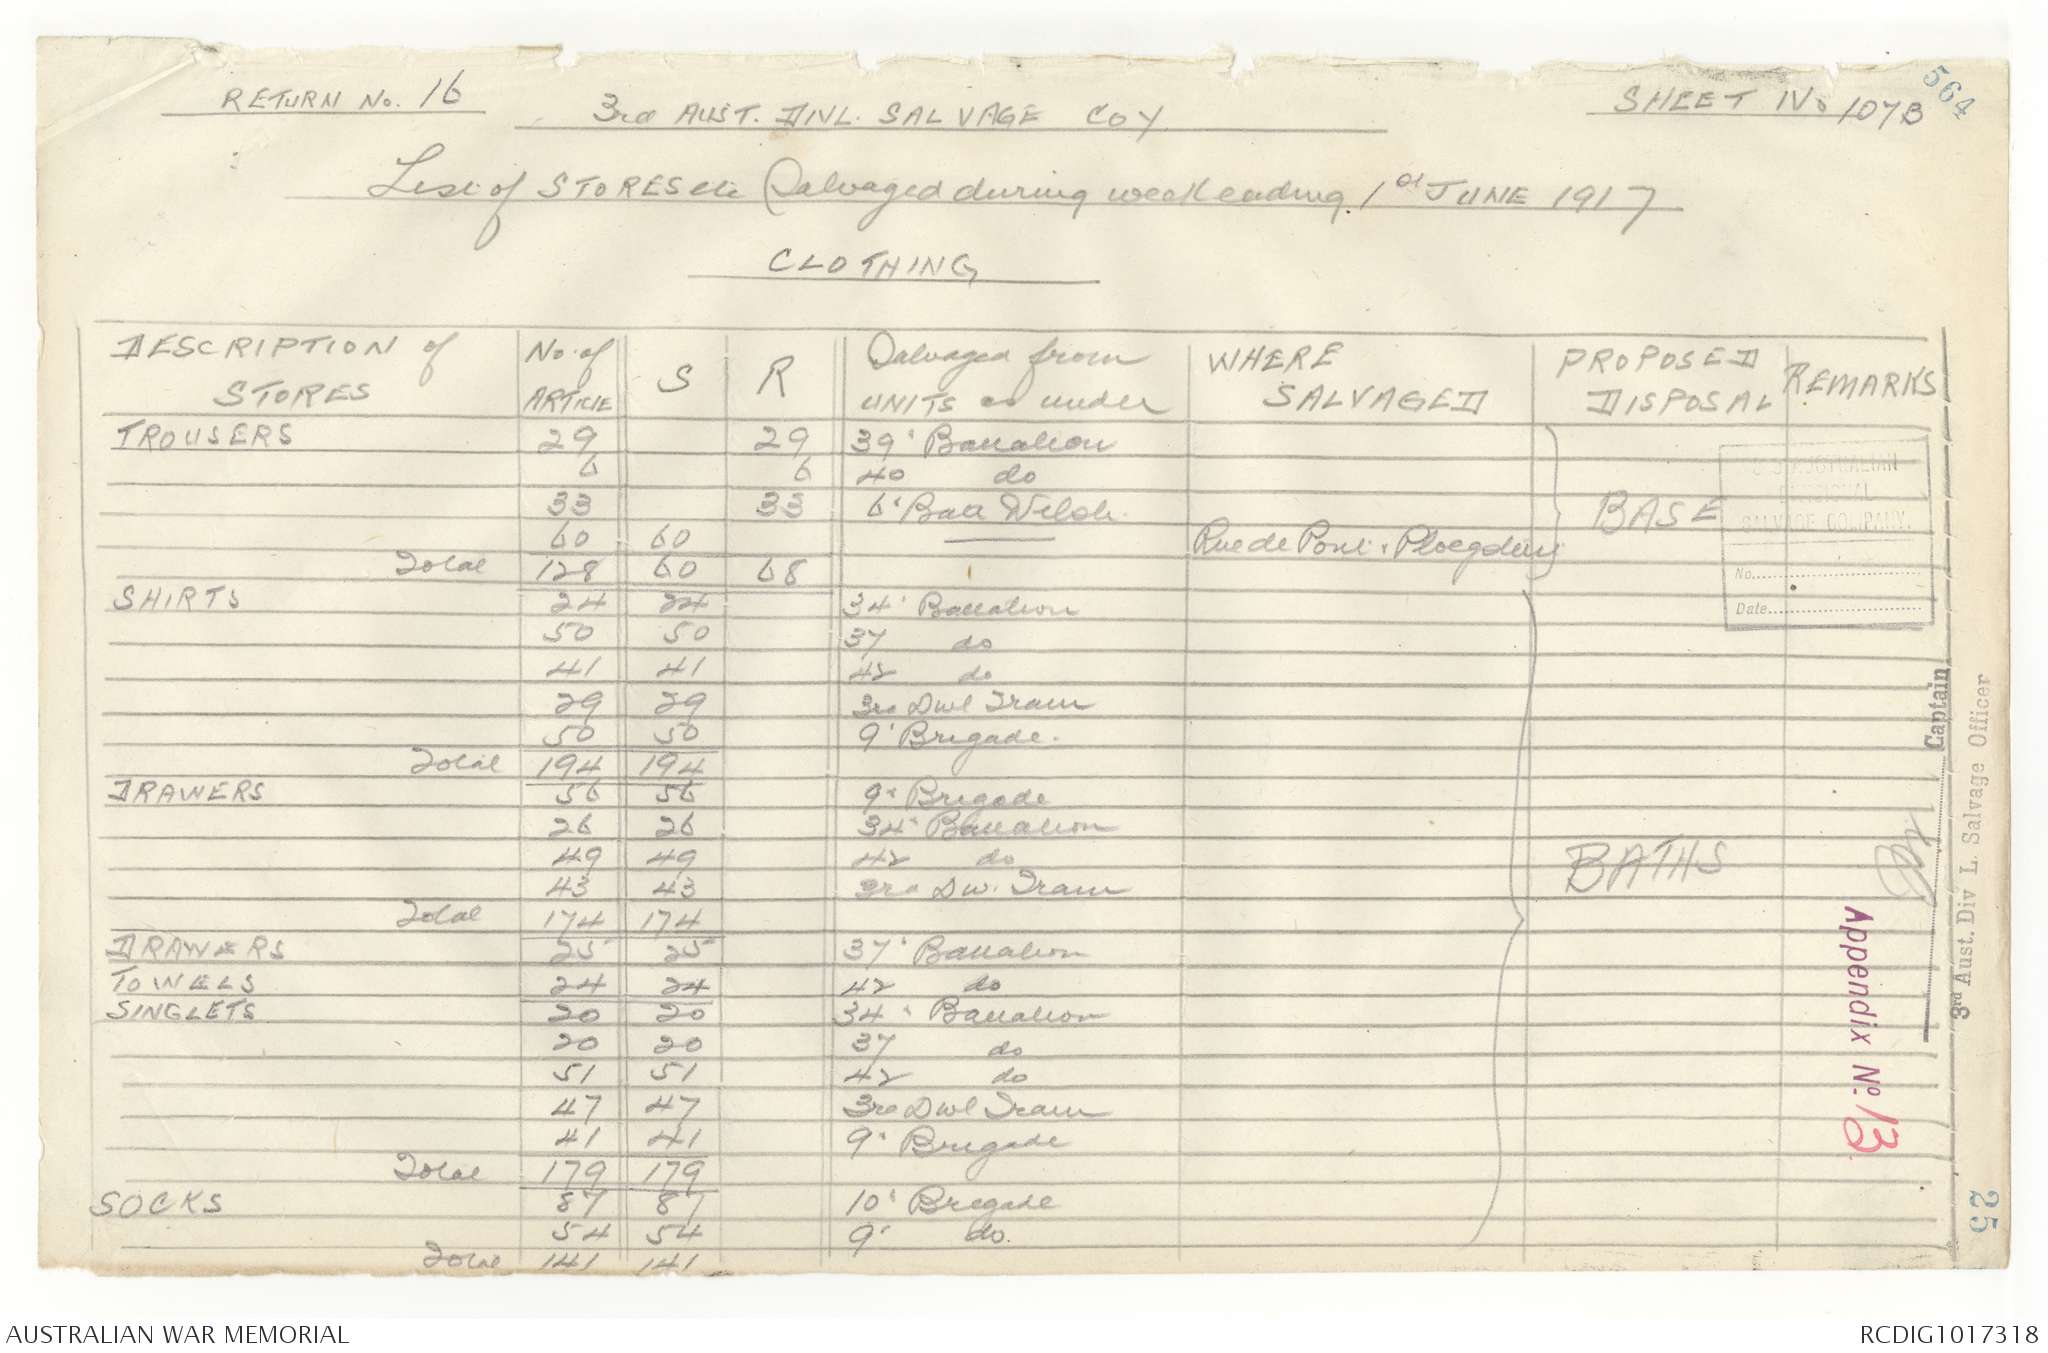 564
RETURN No. 16
3rd AUST. DIVL. SALVAGE COY
SHEET No 107B
List of STORES etc Salvaged during week ending 1st JUNE 1917
CLOTHING
DESCRIPTION of STORES | No. of ARTICLE | S | R | Salvaged from UNITS as under | WHERE SALVAGED | PROPOSED DISPOSAL | REMARKS
TROUSERS 29 29 39' Battalion
6 6 40 do
33 33 6' Batt Welsh. BASE
60 60 Rue de Pont
Total 128 60 68
SHIRTS 24 24 34' Battalion
50 50 37 do
41 41 42 do
29 29 3rd Divl Train
50 50 9' Brigade.
Total 194 194
DRAWERS 56 56 9' Brigade
26 26 34' Battalion
49 49 42 do BATHS
43 43 3rd Div. Train
Total 174 174
DRAWERS 25 25 37' Battalion
TOWELS 24 24 42 do
SINGLETS 20 20 34' Battalion
20 20 37 do
51 51 42 do
47 47 3rd Divl Train
41 41 9' Brigade
Total 179 179
SOCKS 87 87 10' Brigade
54 54 9' do.
Total 141 141
AUSTRALIAN
DIVISIONAL
SALVAGE COMPANY.
No.
Date
Captain
3rd Aust. Div L. Salvage Officer
Appendix No. 13
25
AUSTRALIAN WAR MEMORIAL
RCDIG1017318